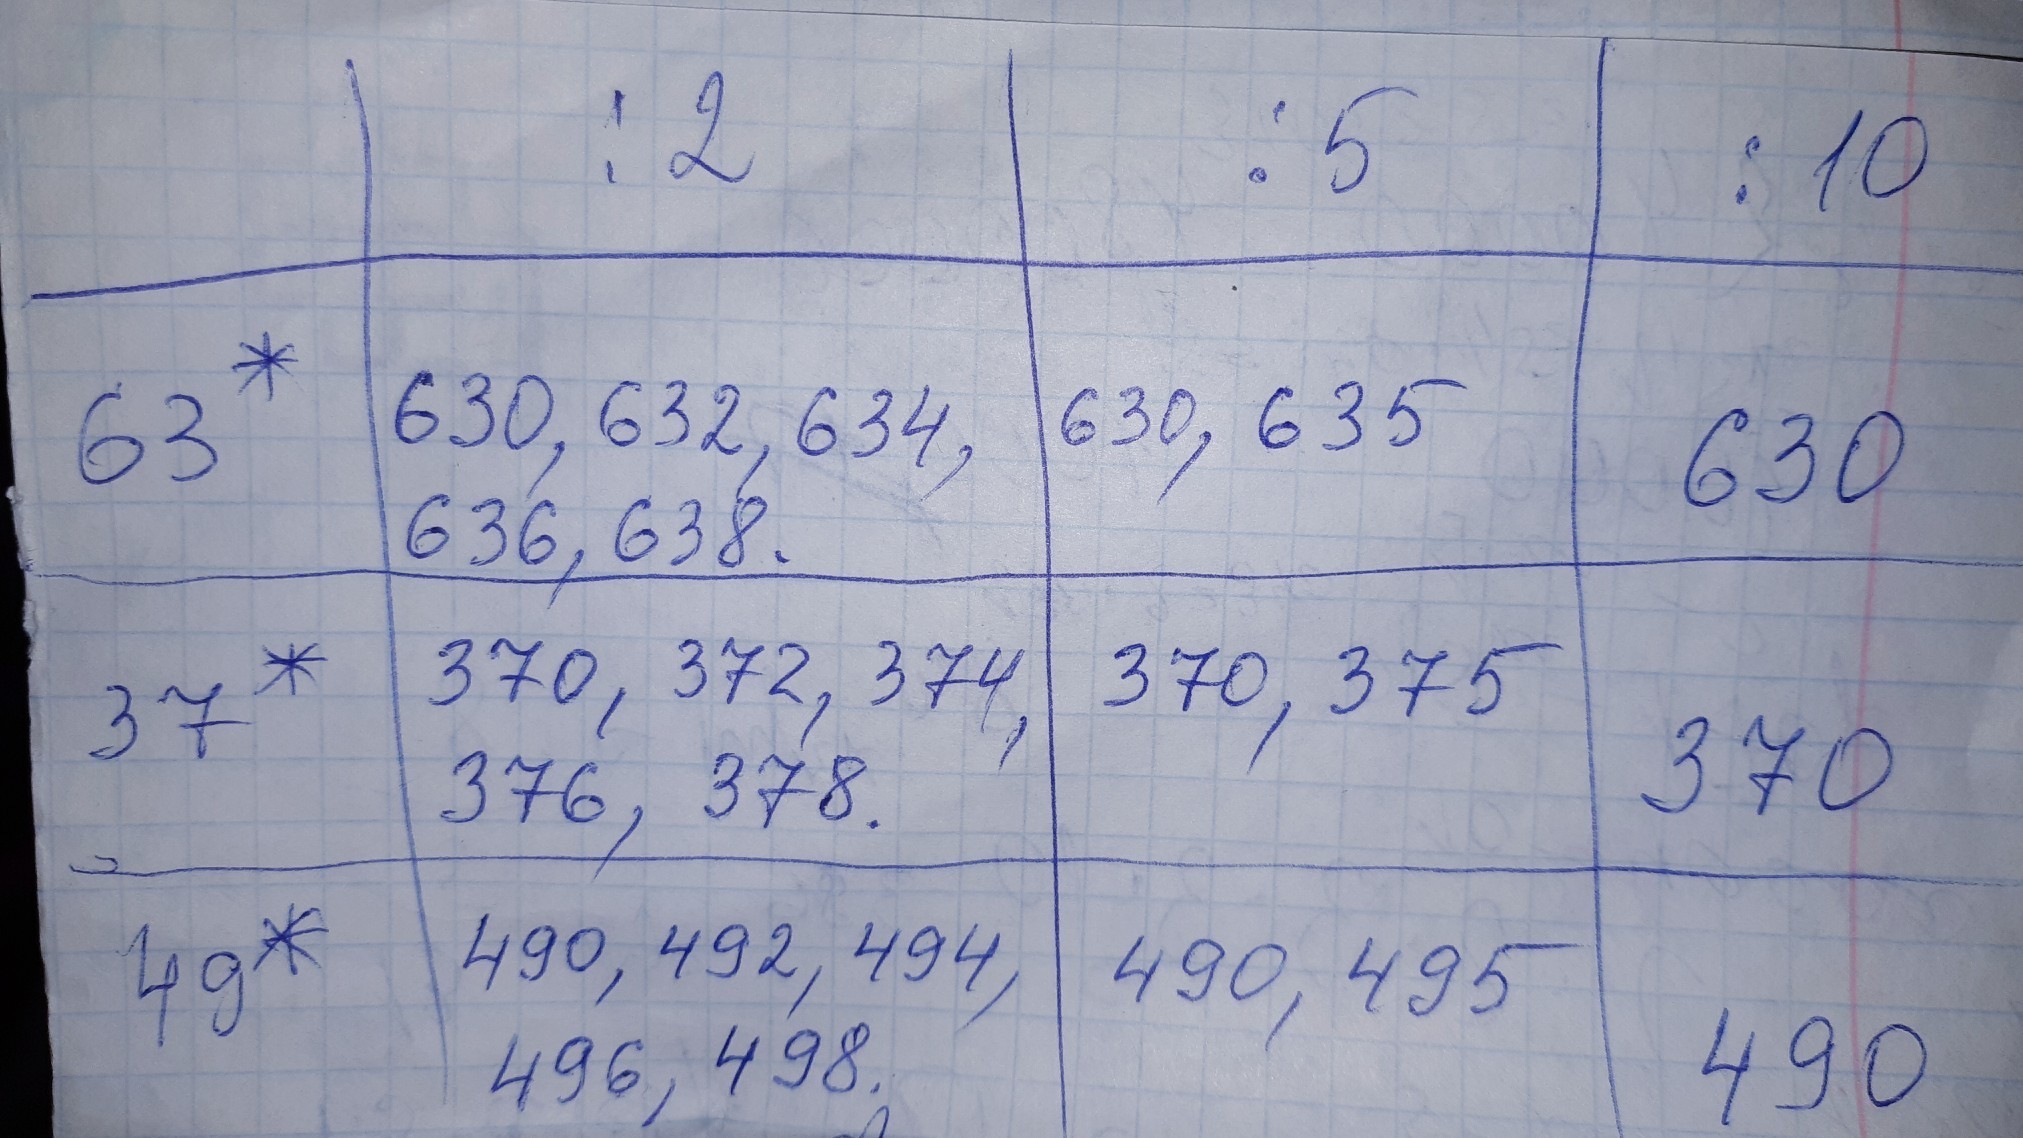 : 2 : 5 : 10
63* 630, 632, 634, 630, 635 630
636, 638.
37* 370, 372, 374, 370, 375 370
376, 378.
49* 490, 492, 494, 490, 495 490
496, 498.